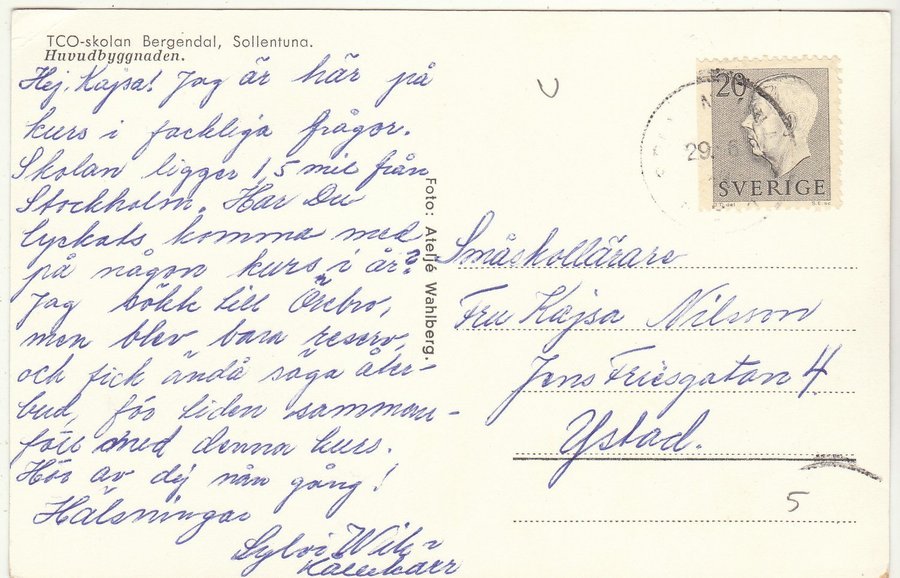 TCO-skolan Bergendal, Sollentuna.
Huvudbyggnaden.
Hej Kajsa! Jag är här på
kurs i fackliga frågor.
Skolan ligger 1,5 mil från
Stockholm. Har Du
lyckats komma med
på någon kurs i år?
Jag sökte till Örebro,
men blev bara reserv,
och fick ändå säga åter-
bud, för tiden samman-
föll med denna kurs.
Hör av dej nån gång!
Hälsningar
Sylvi Wik-
Foto: Ateljé Wahlberg.
20
SVERIGE
29. 6
Småskollärare
Fru Kajsa Nilsson
Jens Friesgatan 4
Ystad.
5